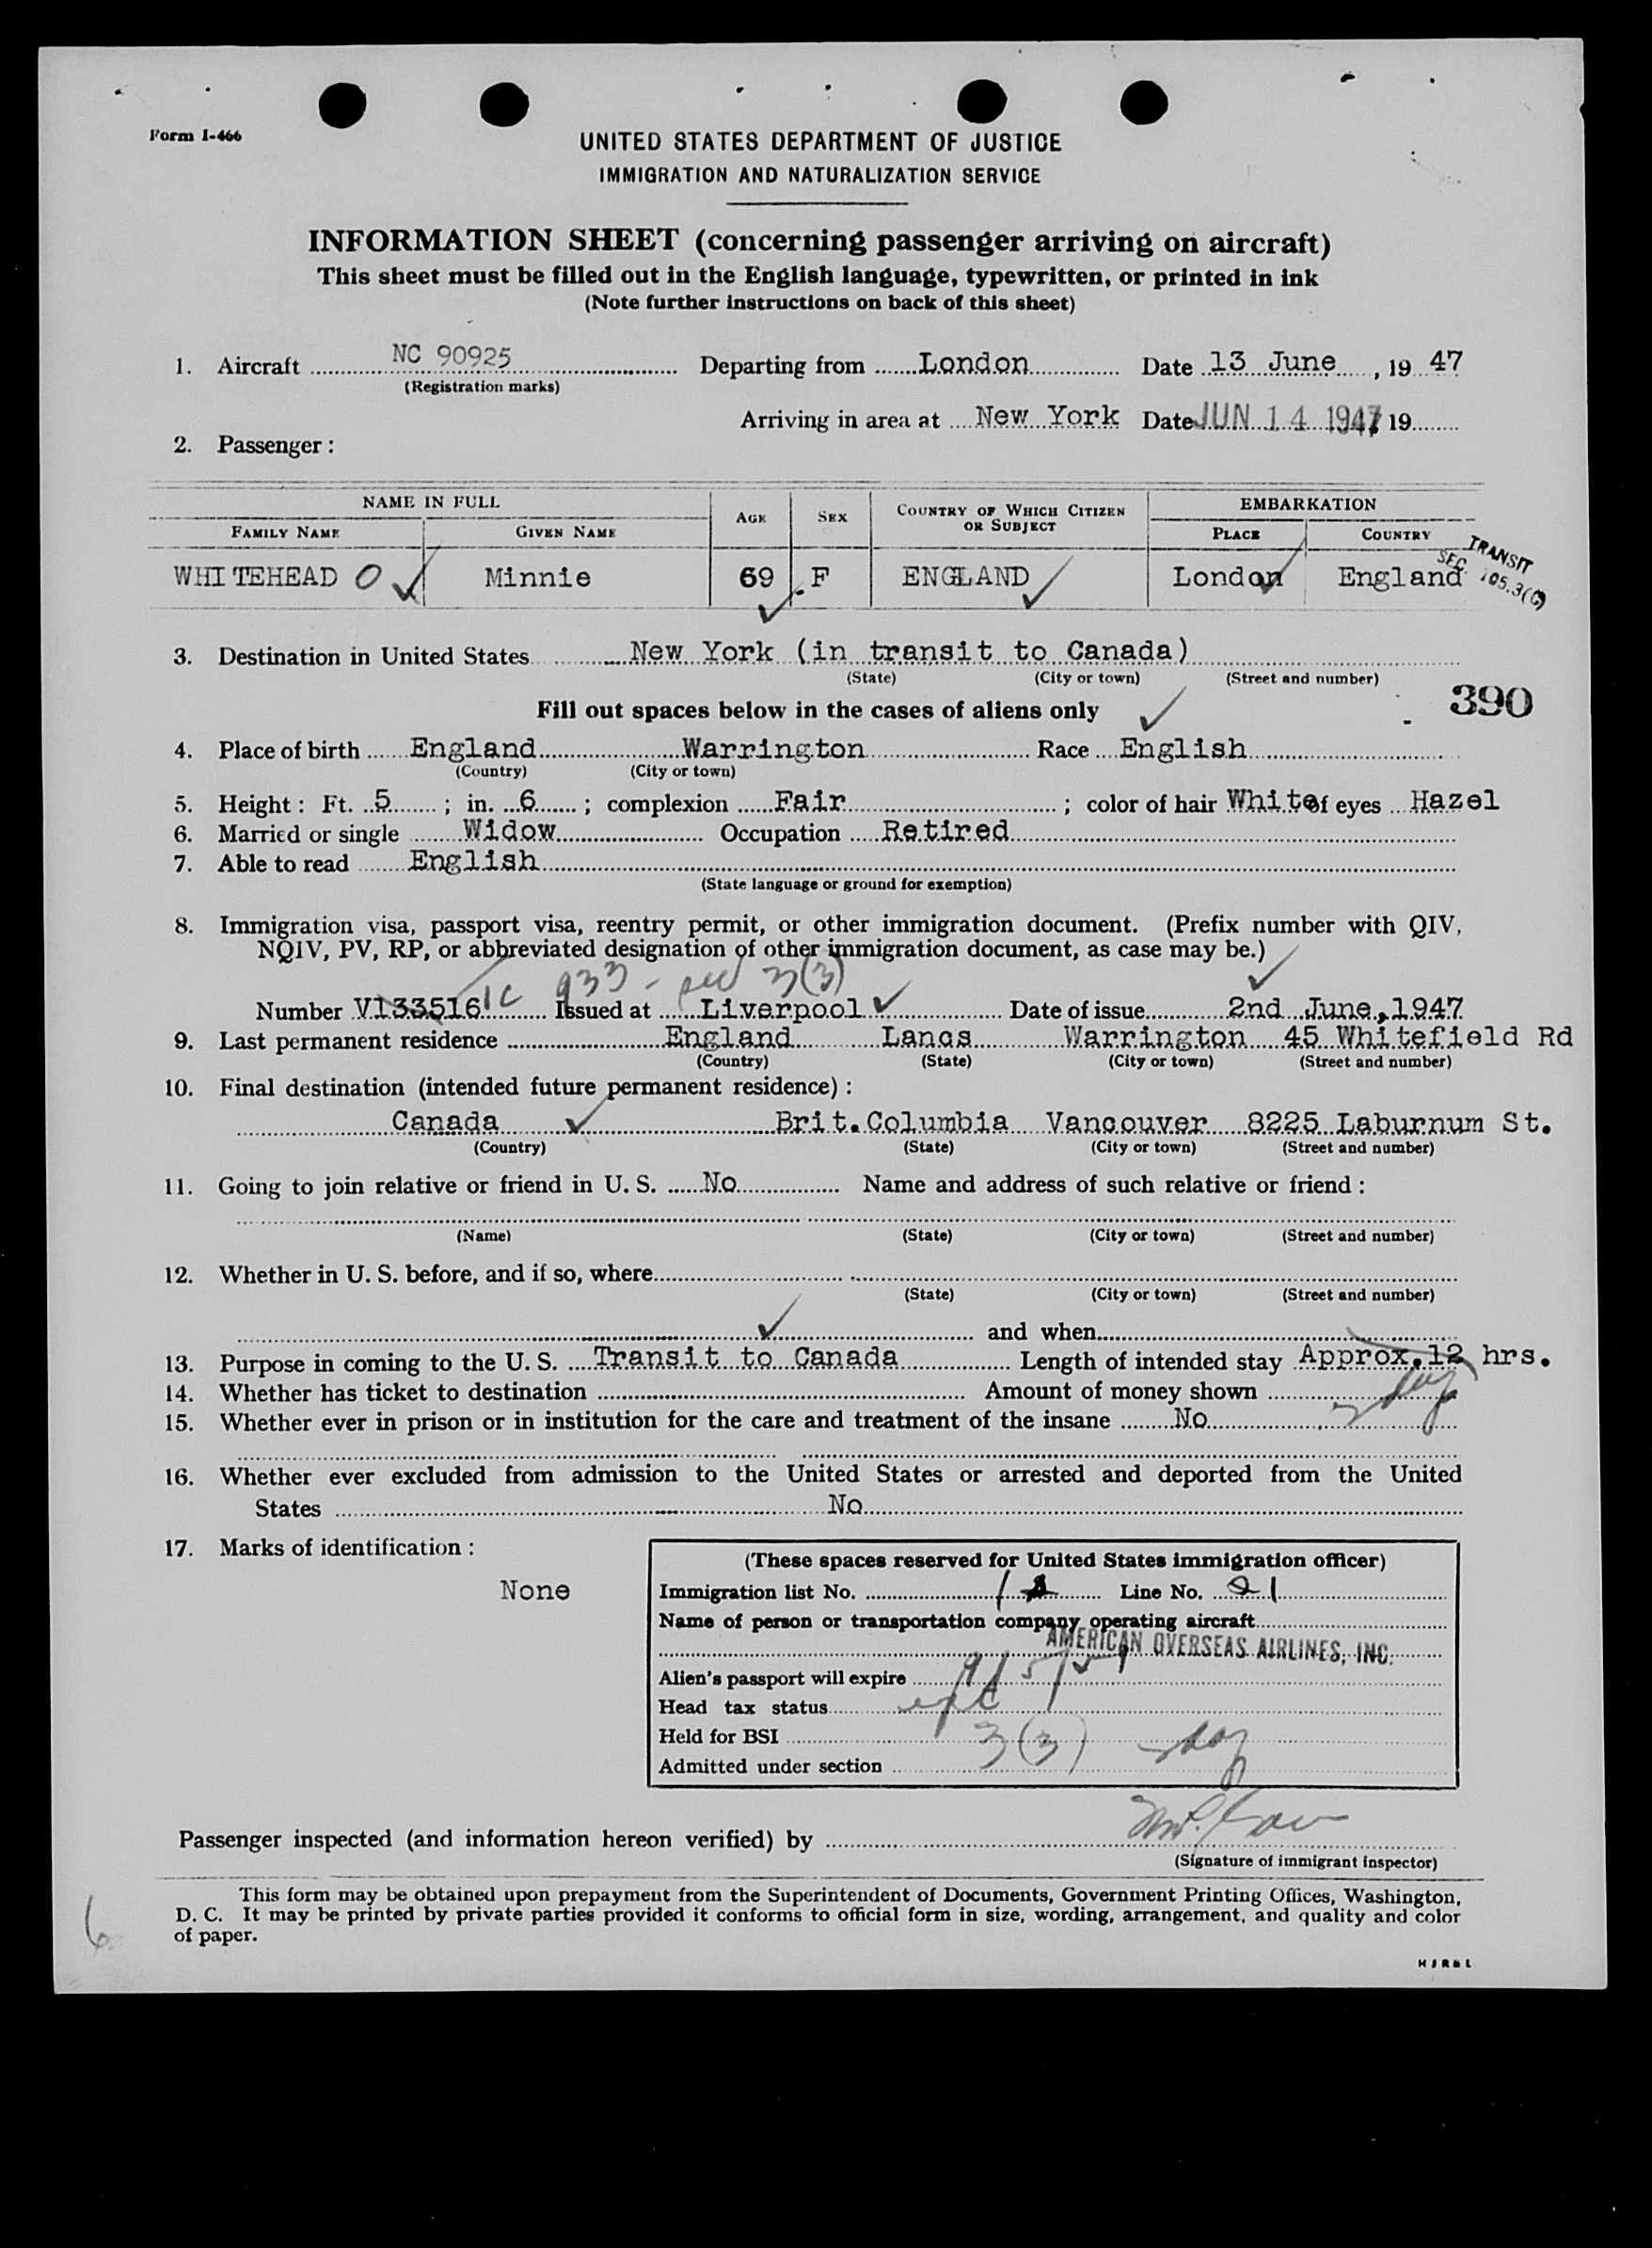 Form I-466
UNITED STATES DEPARTMENT OF JUSTICE
IMMIGRATION AND NATURALIZATION SERVICE
INFORMATION SHEET (concerning passenger arriving on aircraft)
This sheet must be filled out in the English language, typewritten, or printed in ink
(Note further instructions on back of this sheet)
1. Aircraft NC 90925 Departing from London Date 13 June, 19 47
(Registration marks)
Arriving in area at New York Date JUN 14 1947 19
2. Passenger:
NAME IN FULL AGE SEX COUNTRY OF WHICH CITIZEN OR SUBJECT EMBARKATION
FAMILY NAME GIVEN NAME PLACE COUNTRY
TRANSIT
SEC. 105.3(C)
WHITEHEAD O Minnie 69 F ENGLAND London England
3. Destination in United States New York (in transit to Canada)
(State) (City or town) (Street and number)
390
Fill out spaces below in the cases of aliens only
4. Place of birth England Warrington Race English
(Country) (City or town)
5. Height: Ft. 5; in. 6; complexion Fair; color of hair White of eyes Hazel
6. Married or single Widow Occupation Retired
7. Able to read English
(State language or ground for exemption)
8. Immigration visa, passport visa, reentry permit, or other immigration document. (Prefix number with QIV,
NQIV, PV, RP, or abbreviated designation of other immigration document, as case may be.)
933 - 3(3)
Number V133516 Issued at Liverpool Date of issue 2nd June, 1947
9. Last permanent residence England Lancs Warrington 45 Whitefield Rd
(Country) (State) (City or town) (Street and number)
10. Final destination (intended future permanent residence):
Canada Brit. Columbia Vancouver 8225 Laburnum St.
(Country) (State) (City or town) (Street and number)
11. Going to join relative or friend in U. S. No Name and address of such relative or friend:
(Name) (State) (City or town) (Street and number)
12. Whether in U. S. before, and if so, where
(State) (City or town) (Street and number)
and when
13. Purpose in coming to the U. S. Transit to Canada Length of intended stay Approx. 12 hrs.
14. Whether has ticket to destination Amount of money shown
15. Whether ever in prison or in institution for the care and treatment of the insane No
16. Whether ever excluded from admission to the United States or arrested and deported from the United
States No
17. Marks of identification:
None
(These spaces reserved for United States immigration officer)
Immigration list No. Line No. 21
Name of person or transportation company operating aircraft
AMERICAN OVERSEAS AIRLINES, INC.
Alien's passport will expire
Head tax status
Held for BSI
Admitted under section 3(3)
Passenger inspected (and information hereon verified) by
(Signature of immigrant inspector)
This form may be obtained upon prepayment from the Superintendent of Documents, Government Printing Offices, Washington,
D. C. It may be printed by private parties provided it conforms to official form in size, wording, arrangement, and quality and color
of paper.
6